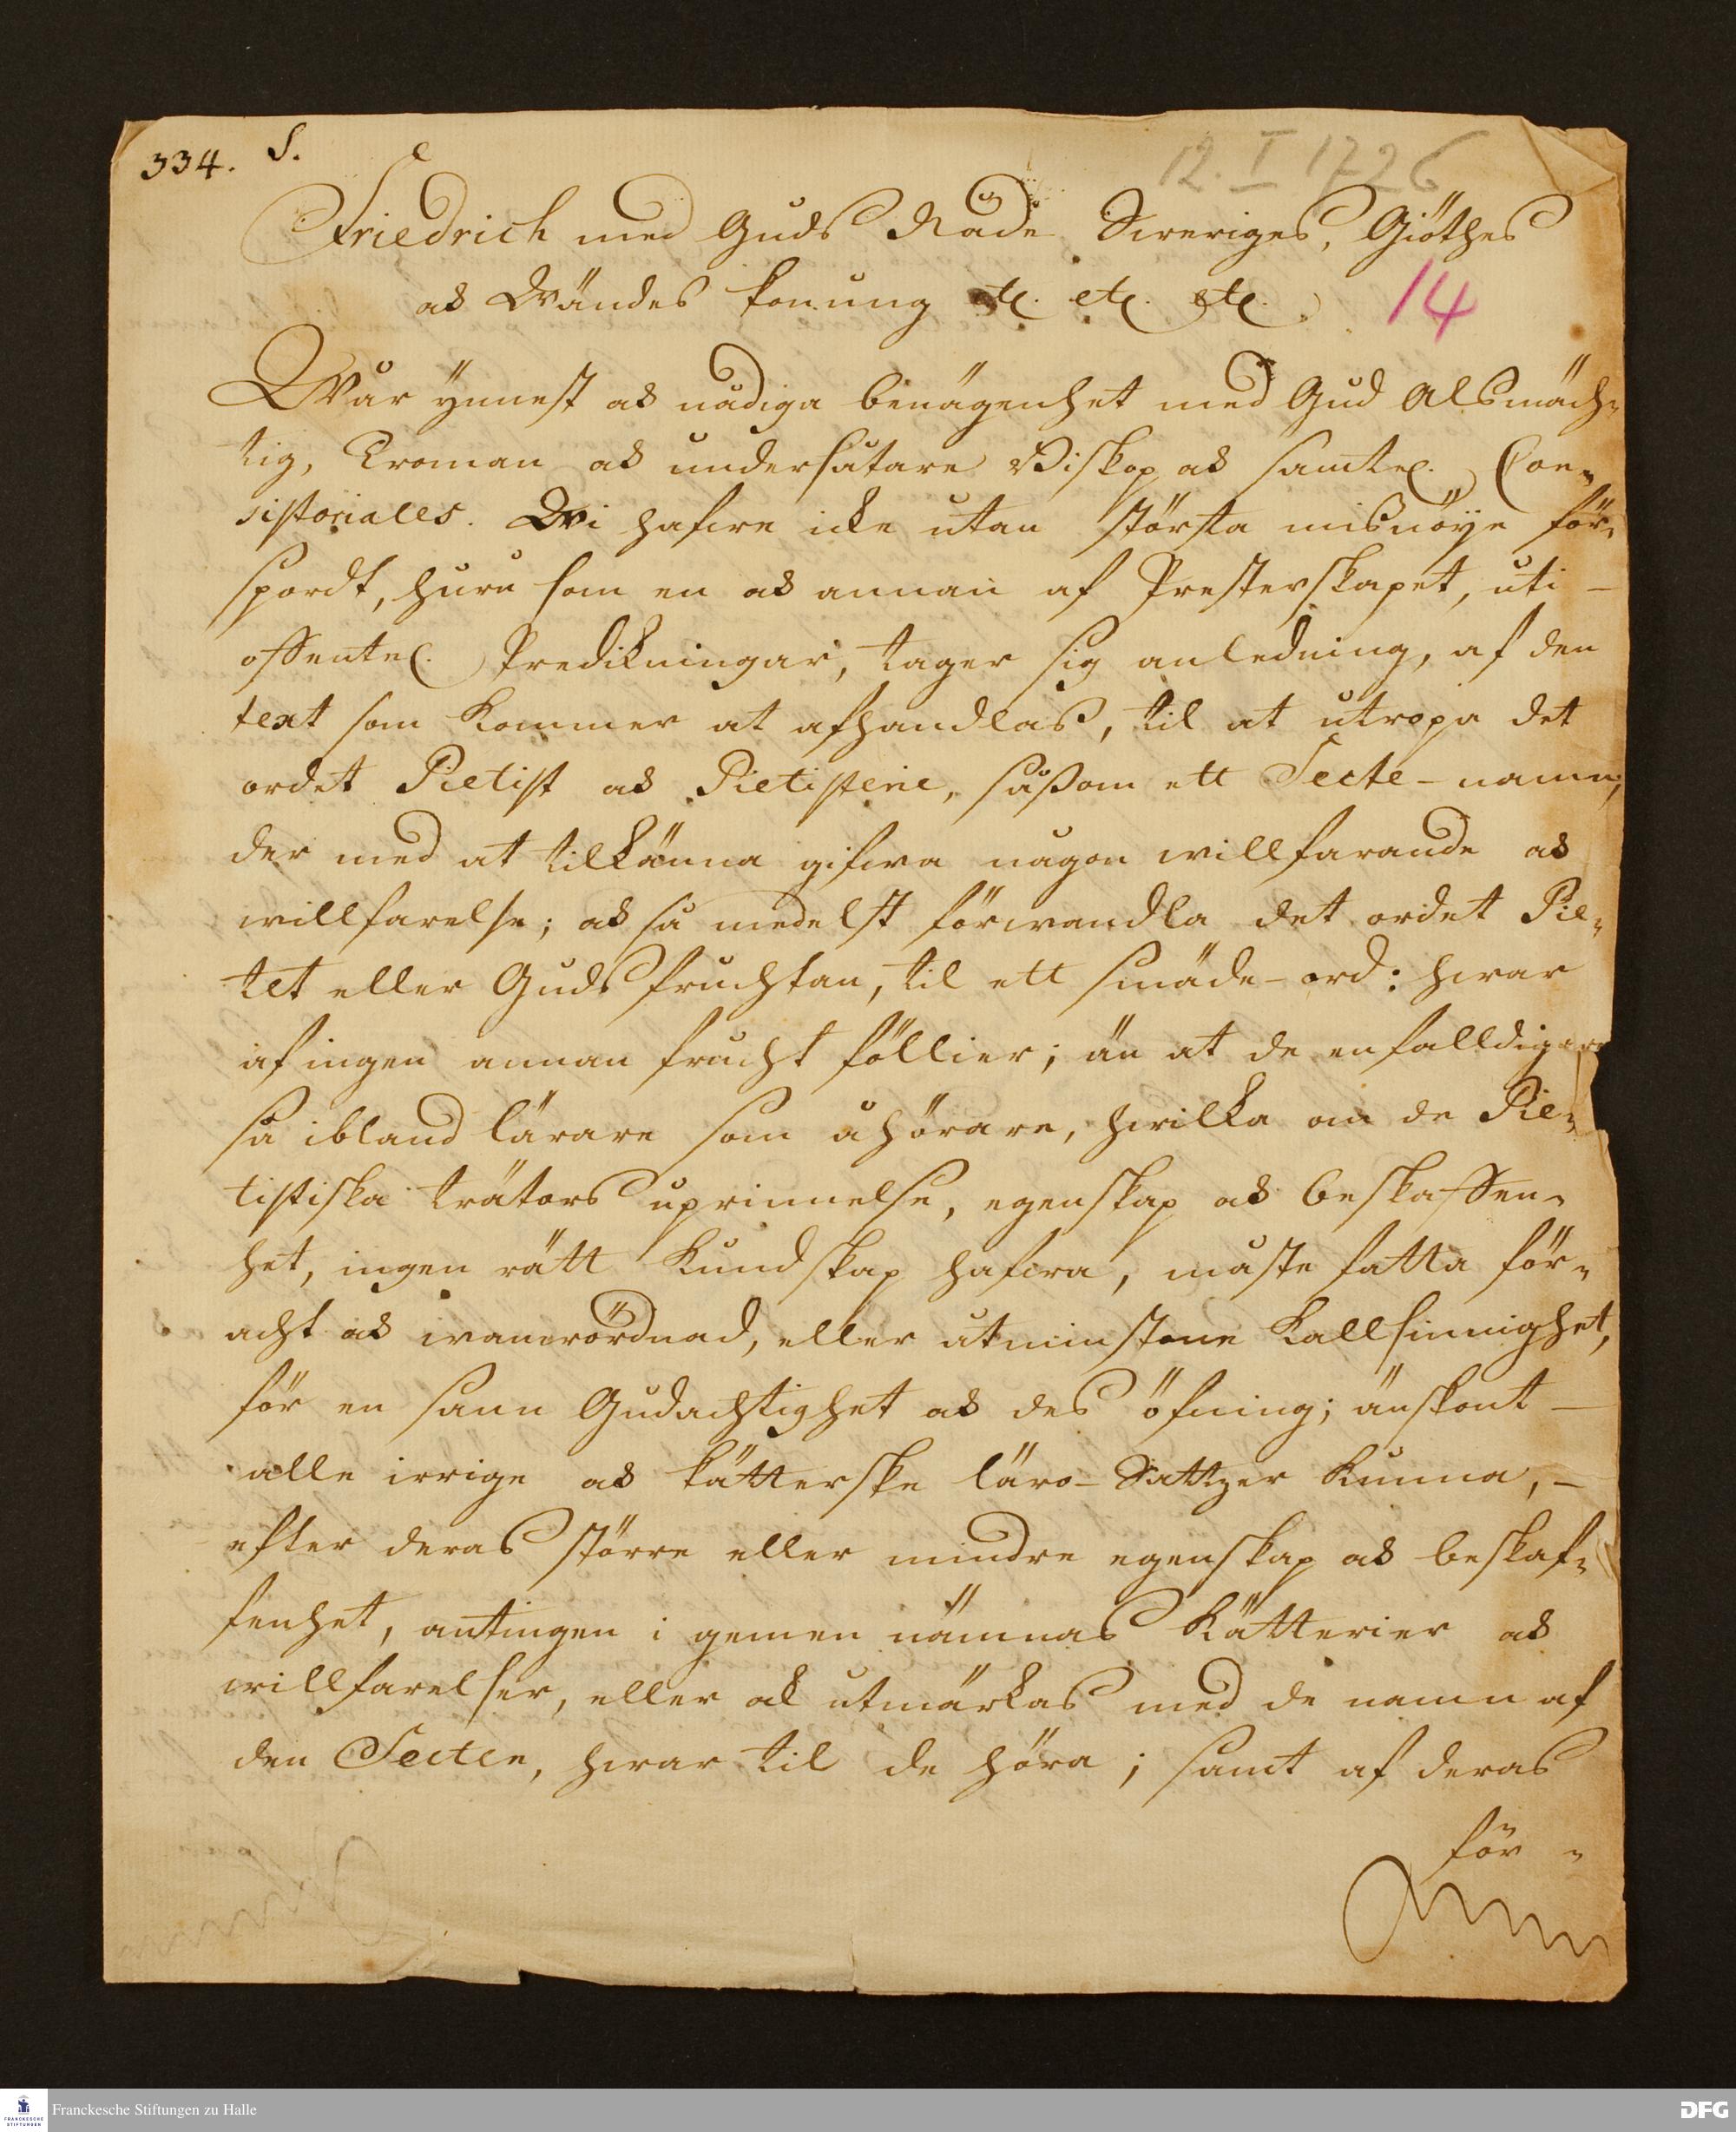 334. S.
12. I 1726
Friedrich med Guds Nåde Sweriges, Giöthes
och Wändes konung etc. etc. etc.
14
Wår ynnest och nådiga benägenhet med Gud Alsmäch-
tig, Troman och undersåtare Biskop och samtel. Con-
sistoriales. Wi hafwe icke utan största misnöye för-
spordt, huru som en och annan af Presterskapet, uti -
offentel. Predikningar, tager sig anledning, af den
text som kommer at afhandlas, til at utropa det
ordet Pietist och Pietisterie, såsom ett Secte-namn,
der med at tilkänna gifwa någon willfarande och
willfarelse; och så medelst förwandla det ordet Pie-
tet eller Guds fruchtan, til ett smäde-ord: hwar
af ingen annan frucht föllier; än at de enfalldigare
så ibland lärare som åhörare, hwilka om de Pie-
tistiska trätors uprinnelse, egenskap och beskaffen-
het, ingen rätt kundskap hafwa, måste fatta för-
acht och wanwördnad, eller utminstone kallsinnighet,
för en sann Gudachtighet och des öfning; änskont -
alle irrige och kätterske läro-Sattzer kunna, -
efter deras större eller mindre egenskap och beskaf-
fenhet, antingen i gemen nämnas kätterier och
willfarelser, eller ock utmärkas med de namn af
den Secten, hwar til de höra; samt af deras
för-
Franckesche Stiftungen zu Halle
FRANCKESCHE STIFTUNGEN
DFG